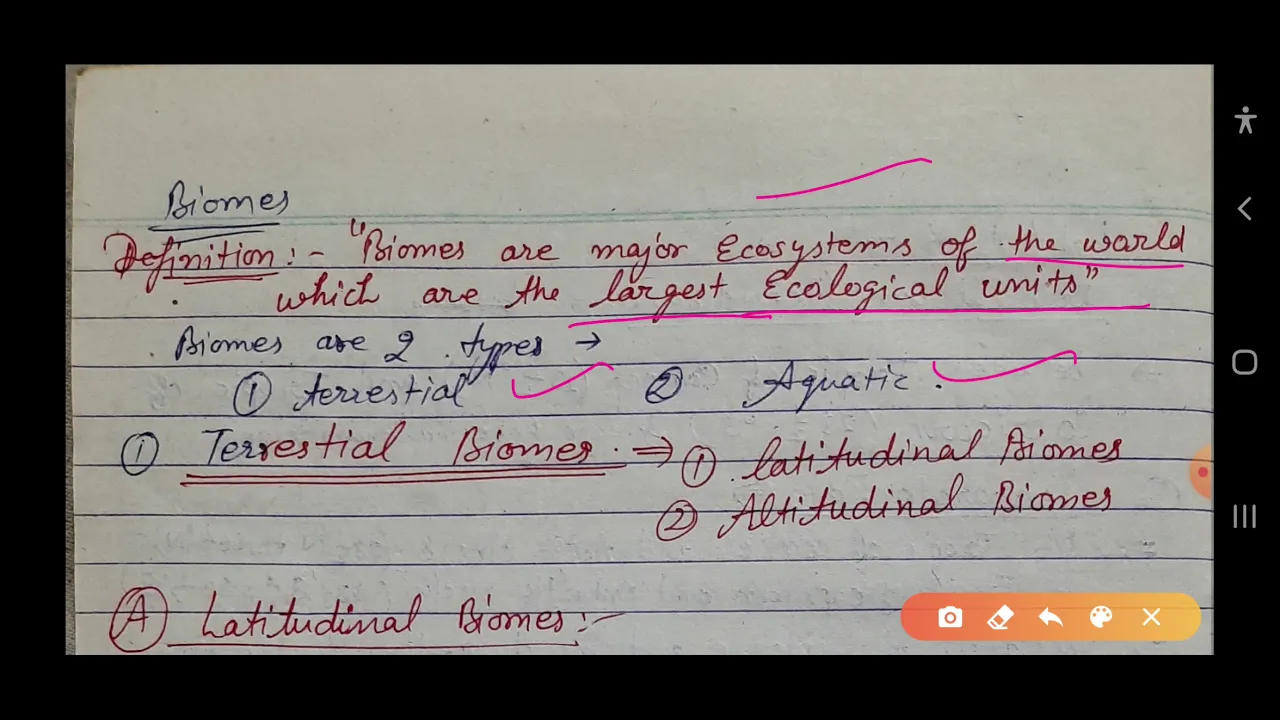 Biomes
Definition:- "Biomes are major Ecosystems of the world
which are the largest Ecological units"
Biomes are 2 types →
① terrestial ② Aquatic.
① Terrestial Biomes. ⇒ ① Latitudinal Biomes
② Altitudinal Biomes
Ⓐ Latitudinal Biomes:-